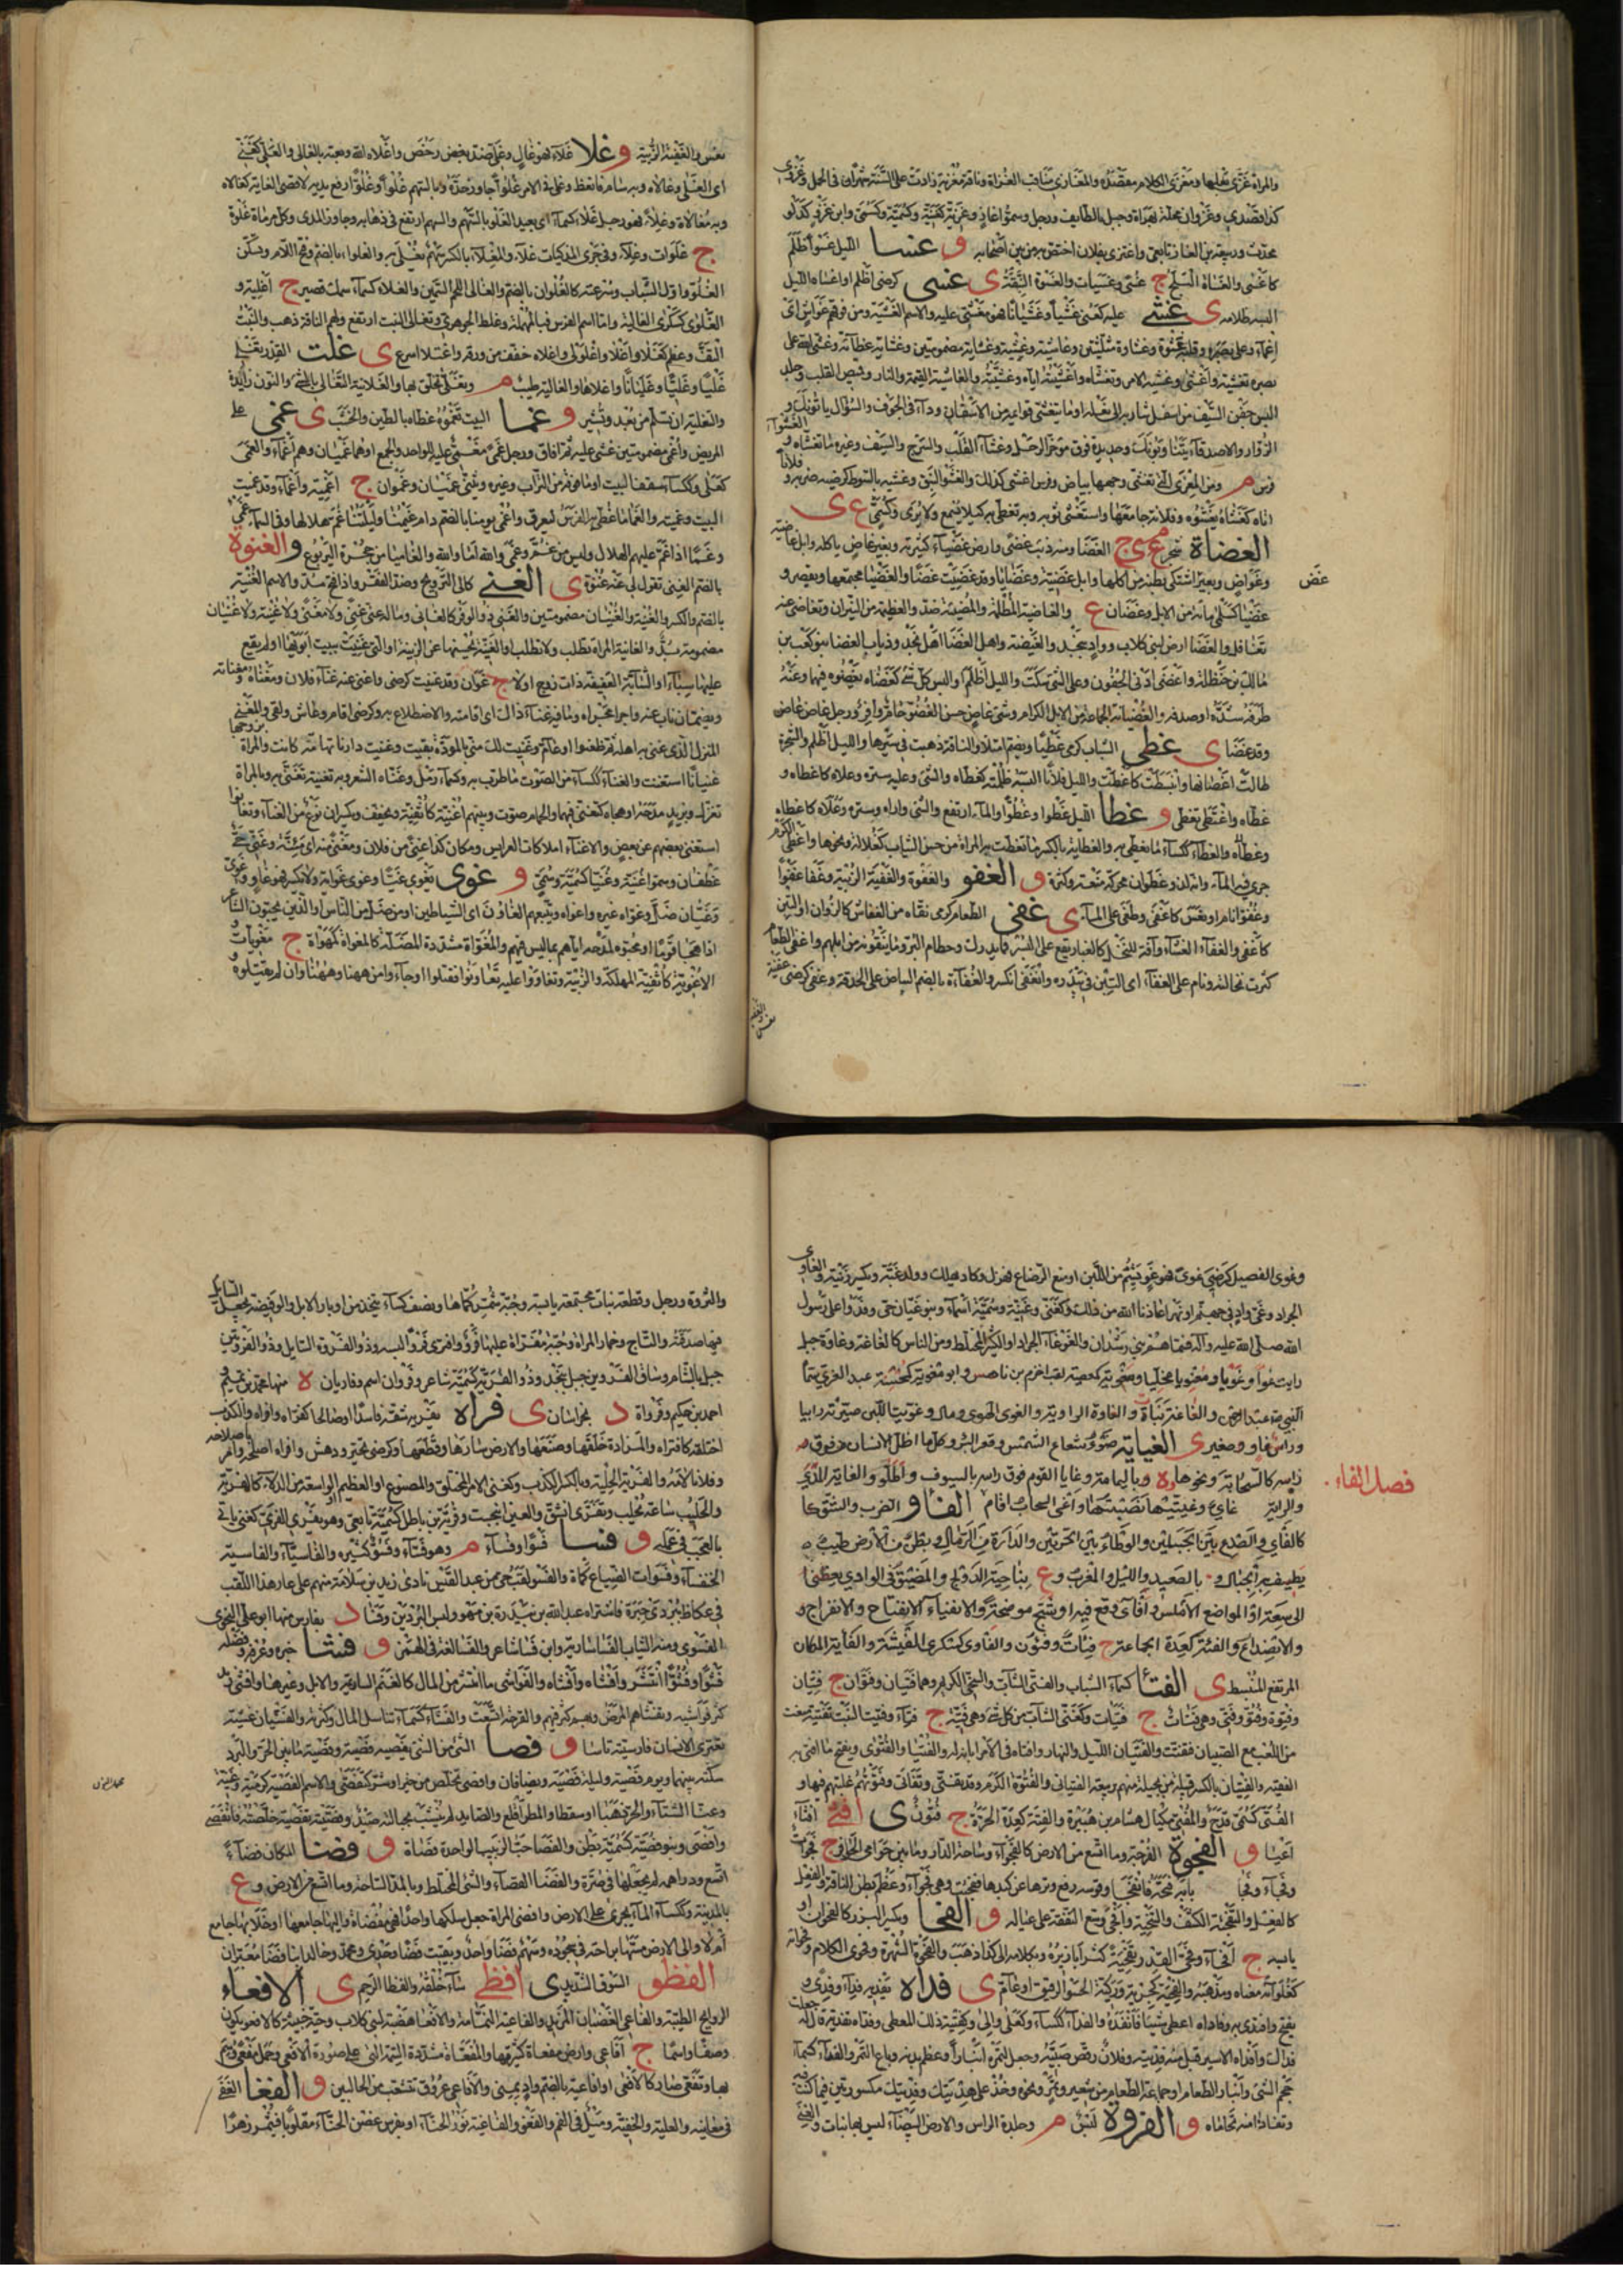 والمراة غزى بعلها ومغزى الكلام مقصده والمغازى مناقب الغزاة وناقة مغزية زادت على السنة شهرا فى الحمل وغزوى
كذا قصدى وغزوان محلة بهراة وجبل بالطايف ورجل وسموا غازية وغزية كغنية وكسمية وكسمى وابن غزو كدلو
محدث وربيعة بن الغاز تابعى واغتزى بفلان اختص به من بين اصحابه و غسا الليل غسوا اظلم
كاغسى والغساة البلح ج غسى وغسيات والغسوة النبقة ى غسى كرضى اظلم واغساه الليل
البسه ظلامه ى غشى عليه كعنى غشيا وغشيانا فهو مغشى عليه والاسم الغشية ومن فوقهم غواش اى
اغماء وعلى بصره وقلبه غشوة وغشاوة مثلثتين وغاشية وغشية وغشاية مضمومتين وغشاية غطاء وغشى الله على
بصره تغشية واغشى وغشيه الامر وتغشاه واغشيته اياه وغشيته والغاشية القيمة والنار وقميص القلب وجلد
البس جفن السيف من اسفل شاربه الى نعله او ما يتغشى قوايمه من الاسفان وداء فى الجوف والسؤال ياتونك و
الزوار والاصدقاء ينتابونك وحديدة فوق موخر الرحل وغشاء القلب والسرج والسيف وغيره ما تغشاه و
الغشواء
فرس م ومن المعزى التى تغشى وجهها بياض وفرس اغشى كذلك والغشو النبق وغشيه بالسوط كرضيه ضربه و
فلانا
اتاه كغشاه يغشوه وفلانة جامعها واستغشى ثوبه وبه تغطى به كيلا يسمع ولا يرى وكسمى ع ى
الغضاة شجر م ج الغضا ومنه ذيب غضى وارض غضياء كثيرته وبعير غاض ياكله وابل غاضية
وغواض وبعير اشتكى بطنه من اكلها وابل غضية وغضايا وقد غضيت غضا والغضيا مجتمعها ويقصر و
غضيا كسلمى ماية من الابل وغضان ع والغاضية المظلمة والمضيئة ضد والعظيمة من النيران وتغاضى عنه
تغافل والغضا ارض لبنى كلاب وواد بنجد والغيضة واهل الغضا اهل نجد وذياب الغضا بنو كعب بن
مالك بن حنظلة واغضى ادنى الجفون وعلى الشى سكت والليل اظلم او البس كل شى كغضاه يغضوه فيهما وعنه
طرفه سده او صده والغضيانة الجماعة من الابل الكرام وشى غاض حسن الغضو جام وافر ورجل غاض غاض
وقد غضا ى غطى الشباب كرمى غطيا ويضم امتلا والناقة ذهبت فى سيرها والليل اظلم والشجرة
طالت اغصانها وانبسطت كاغطت والليل فلانا البسه ظلمته كغطاه والشى وعليه ستره وعلاه كاغطاه و
غطاه واغتطى تغطى و غطا الليل غطوا وغطوا والماء ارتفع والشى واراه وستره وعلاه كاغطاه
وغطاه والغطاء ككساء ما يغطى به والغطاية بالكسر ما تغطت به المراة من حبس الثياب كغلالة ونحوها واغطى الكرم
جرى فيه الماء وانه لذو غطوان محركة منعة وكثرة و الغفو والغفوة والغفية الزبية وغفا غفوا
وغفوا نام او نعس كاغفى وطفى على الماء ى غفى الطعام كرمى نقاه من الغفاش كالزوان او التبن
كاغفى والغفاء الغشاء وآفة للنخل كالغبار يقع على البسر فلا يدرك وحطام البر وما ينفونه من ابلهم واغفى الطعام
كثرت نخالته ونام على الغفاء اى التبن فى بيدره وانغفى انكسر والغفاءة بالضم البياض على الحدقة وغفى كرضى غفية
نعس والغفية
غض
نعس والغفية الزبية و غلا غلاء فهو غال وغلى ضد رخص واغلاه الله وبعته بالغالى والغلى كغنى
اى الغلى وغالاه وبه سام فابعط وغلى فى الامر غلوا جاوز حده وبالسهم غلوا وغلوا رفع يديه لاقصى الغاية كغالاه
وبه مغالاة وغلاء فهو رجل غلاء كسماء اى بعيد الغلو بالسهم والسهم ارتفع فى ذهابه وجاوز المدى وكل مرماة غلوة
ج غلوات وغلاء وفى جرى المذكيات غلاء والمغلاء بالكسر سهم يغلى به والغلواء بالضم وفتح اللام ويسكن
الغلو واول الشباب وسرعته كالغلوان بالضم والغالى اللحم السمين والغلاء كسماء سمك قصير ج اغلية و
الغلوى كسكرى الغالية واما اسم الفرس فبالمهملة وغلط الجوهرى وتغالى النبت ارتفع ولحم الناقة ذهب والنبت
التف وعظم كغلا واغلا واغلولى واغلاه خفف من ورقه واغتلا اسرع ى غلت القدر تغلى
غليا وغليا وغليانا واغلاها والغالية طيب م وتغلى تخلق بها والغلانية التغالى بالشى والنون زايدة
والتغلية ان تسلم من بعد وتشير و غما البيت يغموه غطاه بالطين والخشب ى غمى على
المريض واغمى مضمومتين غشى عليه ثم افاق ورجل غمى مغمى عليه للواحد والجمع او هما غميان وهم اغماء والغمى
كعلى وككساء سقف البيت او ما فوقه من التراب وغيره ويثنى غميان وغموان ج اغمية واغماء وقد غميت
البيت وغميته والغما ما غطى به الفرس ليعرق واغمى يومنا بالضم دام غيمنا وليلتنا غم هلالها وفى السماء غمى
وغما اذا غم عليهم الهلال وليس من غم وغمى والله اما والله والغامياء من جحرة اليربوع و الغنوة
بالضم الغنى تقول لى عنه غنوة ى الغنى كالى التزويج وضد الفقر واذا فتح مد والاسم الغنية
بالضم والكسر والغنية والغنيان مضمومتين والغنى ذو الوفر كالغانى وما له عنه غنى ولا مغنى ولا غنية ولا غنيان
مضمومة بد والغانية المراة تطلب ولا تطلب او الغنية بحسنها عن الزينة او التى غنيت ببيت ابويها او لم يقع
عليها سباء او الشابة العفيفة ذات زوج او لا ج غوان وقد غنيت كرضى واغنى عنه غناء فلان ومغناه ومغناته
ويضمان ناب عنه واجزا مجزاه وما فيه غناء ذاك اى اقامته والاضطلاع به وكرضى اقام وعاش ولقى والمغنى
المنزل الذى غنى به اهله ثم ظعنوا او عام وغنيت لك منى بالمودة بقيت وغنيت دارنا تهامة كانت والمراة بزوجها
غنيانا استغنت والغناء ككساء من الصوت ما طرب به وكسماء رمل وغناه الشعر وبه تغنية تغنى به وبالمراة
تغزل وبزيد مدحه او هجاه كتغنى فيهما والحمام صوت وبينهم اغنية كاثفية ويخفف ويكسران نوع من الغناء وتغانوا
استغنى بعضهم عن بعض والاغناء املاكات العرايس ومكان كذا غنى من فلان ومغنى منه اى مئنة وغنى حى
غطفان وسموا غنية وغنيا كسمية وسمى و غوى يغوى غيا وغوى غواية ولا يكسر فهو غاو وغوى
وغيان ضل وغواه غيره واغواه ويتبعهم الغاوون اى الشياطين او من ضل من الناس او الذين يحبون الشاعر
اذا هجا قوما او محبوه لمدحه اياهم بما ليس فيهم والمغواة مشددة المضلة كالمغواة كمهواة ج مغويات و
الاغوية كاثفية المهلكة والزبية وتغاووا عليه تعاونوا فقتلوا او جاءوا من ههنا وههنا وان لم يقتلوه
وغوى الفصيل كرضى غوى فهو غو بشم من اللبن او منع الرضاع فهزل وكاد يهلك وولد غية ويكسر زنية والغاوى
الجراد وغى واد فى جهنم او نهر اعاذنا الله من ذلك وكغنى وغنية وسمية اسماء وبنو غيان حى وفدوا على رسول
الله صلى الله عليه وآله فسماهم بنى رشدان والغوغاء الجراد او الكثير المختلط ومن الناس كالغاغة وغاوة جبل
رايت غوا وغويا ومغويا مخليا ومغوية كمعصية لقب اخزم بن ناهس وابو مغوية كمحسنة عبد العزى سماه
النبى عبد الرحمن والغاغة نبات والغاوة الراوية والغوى الهوى ومال وغويت اللبن صيرته رايبا
وراس غاو وصغير ى الغياية ضوء شعاع الشمس وقعر البئر وكل ما اظل الانسان من فوق
راسه كالسحابة ونحوها و باليمامة وغايا القوم فوق راسه بالسيوف واظلوا والغاية المدى
والراية غاى وغييتها نصبتها واغيى السحاب اقام الفاو الضرب والشق كا
فصل الفاء
كالفاى والصدع بين الجبلين والوطاء بين الحرتين والدارة من الرمال وبطن من الارض طيب
يطيف به الجبال و بالصعيد والليل والمغرب وع بناحية الدولج والمضيق فى الوادى يفضى
الى سعة او المواضع الاملس وافاى وقع فيه او شج موضحة والانفياء الانفتاح والانفراج و
والانصداع والفئة كعدة الجماعة ج فئات وفئون والفاوى كسكرى الفيشة والفاية المكان
المرتفع المنبسط ى الفتا كسماء الشباب والفتى الشاب والسخى الكريم وهما فتيان وفتوان ج فتيان
وفتوة وفتو وفتى وهى فتاة ج فتيات وكغنى الشاب من كل شى وهى فتية ج فتاء وفتيت البنت تفتية منعت
من اللعب مع الصبيان فتفتت والفتيان الليل والنهار وافتاه فى الامر ابانه له والفتيا والفتوى ويفتح ما افتى به
الفقيه والفتيان بالكسر قبيلة من بجيلة منهم ربيعة الفتيانى والفتوة الكرم وقد تفتى وتفاتى وفتوتهم غلبتهم فيها و
الفتى كسمى قدح الشطار والمفتى مكيال هشام بن هبيرة والفتة كعدة الحرة ج فتون ى افثى افثاء
اعيا و الفجوة الفرجة وما اتسع من الارض كالفجواء وساحة الدار وما بين حوامى الحافر ج فجوات
وفجاء وفجا بابه فتحه فانفجى وقوسه رفع وترها عن كبدها ففجيت وهى فجواء وعظم بطن الناقة والفعل
كالفعل والتفجية الكشف والتنحية وافجى وسع النفقة على عياله و الفحا ويكسر البزر كالفحواء او
يابسه ج افحاء وفحى القدر تفحية كثر ابازيره وبكلامه الى كذا ذهب والفحوة الشهدة وفحوى الكلام وفحواه
كغلواء معناه ومذهبه والفحية كجرية وركية الحسو الرقيق او عام ى فداه يفديه فداء وفدى و
يفتح وافتدى به وفاداه اعطى شيئا فانقذه والفداء ككساء وكعلى والى وكفتية ذلك المعطى وفداه تفدية قال له جعلت
فداك وافداه الاسير قبل منه فديته وفلان رقص صبيه وجعل لتمره انبارا وعظم بدنه وباع التمر والفداء كسماء
حجم الشى وانبار الطعام او جماعة الطعام من شعير وتمر ونحوه وخذ على هديتك وفديتك مكسورتين فيما كنت فيه
وتفادى منه تحاماه و الفروة لبس م وجلدة الراس والارض البيضاء ليس بها نبات والغنى
والثروة ورجل وقطعة نبات مجتمعة يابسة وجبة شمر كماها ونصف كساء يتخذ من اوبار الابل والوفضة يجعل السايل
فيها صدقته والتاج وخمار المراة وجبة مفراة عليها فرو وافترى فروا لبسه وذو الفروة السايل وذو الفروين
جبل بالشام وساق الفروين جبل بنجد وذو الفرية كسمية شاعر وفروان اسم وفاريان ة منها محمد بن تميم
احمد بن حكيم وفرواة د بخراسان ى فراه يفريه شقه فاسدا او صالحا كفراه وافراه والكذب
اختلقه كافتراه والمزادة خلقها وصنعها والارض سارها وقطعها وكرضى تحير ودهش وافراه اصلحه او امر باصلاحه
وفلانا لامه والفرية الجلبة وبالكسر الكذب وكغنى الامر المختلق والمصنوع او العظيم والواسعة من الدلاء كالفرية
والحليب ساعة يحلب وتفرى انشق والعين انبجست وفرية بن باطل كسمية تابعى وهو يفرى الفرى كغنى ياتى
بالعجب فى عمله و فسا فسوا وفساء م وهو فساء وفسو كثيره والفاسياء والفاسية
الخنفساء وفسوات الضباع كماة والفسو لقب حى من عبد القيس نادى زيد بن سلامة منهم على عار هذا اللقب
فى عكاظ ببردى حبرة فاشتراه عبد الله بن بيدرة بن مهو ولبس البردين وفسا د بفارس منها ابو على النحوى
الفسوى ومنه الثياب الفساسارية وابن فسا شاعر والفسا لغة فى الهمز و فشا خبره وعرفه وفضله
فشوا وفشوا انتشر وافشاه وافشاه والفواشى ما انتشر من المال كالغنم السايمة والابل وغيرها وافشى زيد
كثر فواشيه وتفشاهم المرض وبهم كثر فيهم والقرحة اتسعت والفشاء كسماء تناسل المال وكثرته والفشيان غشية
تعترى الانسان فارسيته تاسا و فصا الشى من الشى يفصيه فصية وفصية ما بين الحر والبرد
سكتة بينهما ويوم فصية وليلة فصية ويضافان وافصى تخلص من خير او شر كتفصى والاسم الفصية كرمية و
وعنا الشتاء والحر ذهبا او سقطا والمطر اقلع والصايد لم ينشب بحباله صيد وفصيته تفصية خلصته فانفصى
وافصى وبنو فصية كسمية بطن والفصا حب الزبيب الواحدة فصاة و فضا المكان فضاء
اتسع ودراهمه لم يجعلها فى صرة والفضا الفصاء والشى المختلط وبالمد الساحة وما اتسع من الارض وع
بالمدينة وككساء الماء يجرى على الارض وافضى المراة جعل مسلكيها واحدا فهى مفضاة واليها جامعها او خلا بها جامع
ام لا والى الارض مسها براحته فى سجوده وسهم فضا واحد وبقيت فضا وحدى ومحمد وخالد ابنا فضا معبران
الفظو السوق الشديد ى افظى ساء خلقه والفظا الرحم ى الافعاء
الروايح الطيبة والفاعى الغضبان المزبد والفاعية النمامة والافعا هضبة لبنى كلاب وحية خبيثة كالافعو يكون
وصفا واسما ج افاعى وارض مفعاة كثيرتها والمفعاة مشددة السمة التى على صورة الافعى وجمل مفعى وسم
بها وتفعى صار كالافعى او افاعية بالضم واد بمنى والافاعى عروق تتشعب من الحالبين و الفغا الغفى
فى معانيه والعلبة والخفية وميل فى الفم والفغو والفاغية نور الحناء او يغرس غصن الحناء مقلوبا فيثمر زهرا